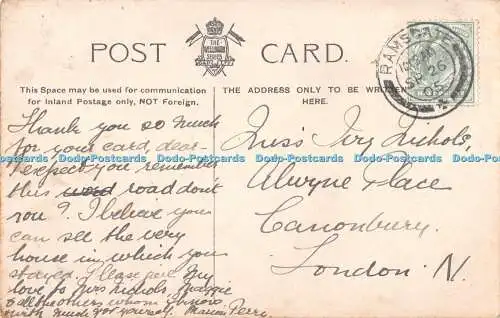 POST CARD.
THE
WELLINGTON
SERIES
This Space may be used for communication
for Inland Postage only, NOT Foreign.
THE ADDRESS ONLY TO BE WRITTEN
HERE.
RAMSGATE
26
Thank you so much
for your card, dear.
I expect you remember
this word road don't
you? I believe you
can see the very
house in which you
stayed. Please give my
love to Mrs Nichols, Maggie
& all the others whom I know
with much for yourself. Marion Perry.
Miss Ivy Nichols,
Alwyne Place
Canonbury.
London N.
Dodo-Postcards Dodo-Postcards Dodo-Postcards